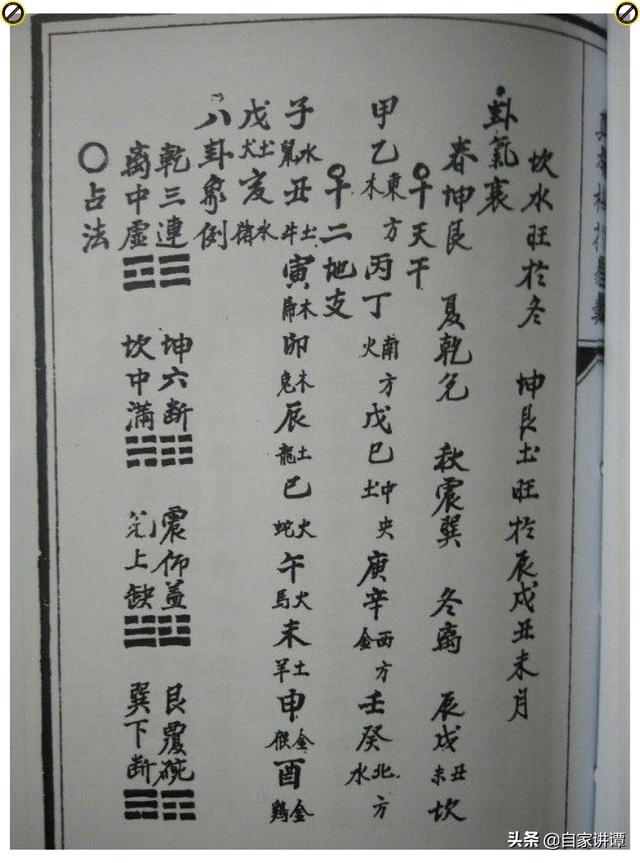 坎水旺於冬 坤艮土旺於辰戌丑未月
卦氣衰
春坤艮 夏乾兌 秋震巽 冬離 辰戌丑未坎
○十天干
甲乙東方木 丙丁南方火 戊巳中央土 庚辛西方金 壬癸北方水
○十二地支
子水鼠 丑土牛 寅木虎 卯木兔 辰土龍 巳火蛇 午火馬 未土羊 申金猴 酉金鷄
戌土犬 亥水猪
八卦象例
乾三連☰ 坤六断☷ 震仰盂☳ 艮覆碗☶
离中虛☲ 坎中滿☵ 兌上缺☱ 巽下断☴
○占法
头条 @自家讲谭